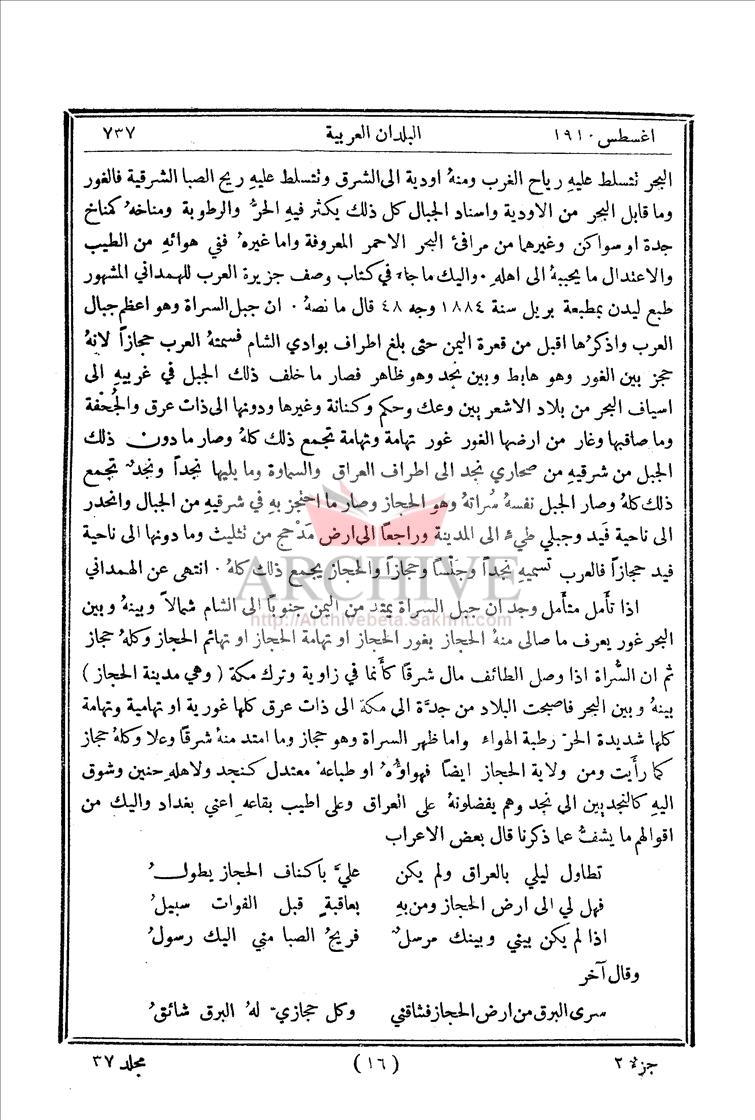 اغسطس ١٩١٠ البلدان العربية ٧٣٧
البحر تتسلط عليهِ رياح الغرب ومنهُ اودية الى الشرق وتتسلط عليهِ ريح الصبا الشرقية فالغور
وما قابل البحر من الاودية واسناد الجبال كل ذلك يكثر فيهِ الحرُّ والرطوبة ومناخهُ كمناخ
جدة او سواكن وغيرهما من مرافئ البحر الاحمر المعروفة واما غيرهُ ففي هوائهِ من الطيب
والاعتدال ما يحببهُ الى اهلهِ ٠ واليك ما جاء في كتاب وصف جزيرة العرب للهمداني المشهور
طبع ليدن بمطبعة بريل سنة ١٨٨٤ وجه ٤٨ قال ما نصهُ ٠ ان جبل السراة وهو اعظم جبال
العرب واذكرُها اقبل من قعرة اليمن حتى بلغ اطراف بوادي الشام فسمتهُ العرب حجازاً لانهُ
حجز بين الغور وهو هابط وبين نجد وهو ظاهر فصار ما خلف ذلك الجبل في غربيهِ الى
اسياف البحر من بلاد الاشعر بين وعك وحكم وكنانة وغيرها ودونها الى ذات عرق والجُحْفة
وما صاقبها وغار من ارضها الغور غور تهامة وتهامة تجمع ذلك كلهُ وصار ما دون ذلك
الجبل من شرقيهِ من صحاري نجد الى اطراف العراق والسماوة وما يليها نجداً ونجدٌ تجمع
ذلك كلهُ وصار الجبل نفسهُ سُراتهُ وهو الحجاز وصار ما احتجز بهِ في شرقيهِ من الجبال وانحدر
الى ناحية فَيد وجبلي طيء الى المدينة وراجعاً الى ارض مَذْحج من تثليث وما دونها الى ناحية
فيد حجازاً فالعرب تسميهِ نجداً وجَلْساً وحجازاً والحجاز يجمع ذلك كلهُ ٠ انتهى عن الهمداني
اذا تأمل متأمل وجد ان جبل السراة يمتد من اليمن جنوباً الى الشام شمالاً وبينهُ وبين
البحر غور يعرف ما صالى منهُ الحجاز بغور الحجاز او تهامة الحجاز او تهائم الحجاز وكلهُ حجاز
ثم ان السُّراة اذا وصل الطائف مال شرقاً كأنما في زاوية وترك مكة ( وهي مدينة الحجاز )
بينهُ وبين البحر فاصبحت البلاد من جدَّة الى مكة الى ذات عرق كلها غورية او تهامية وتهامة
كلها شديدة الحرّ رطبة الهواء واما ظهر السراة وهو حجاز وما امتد منهُ شرقاً وعلا وكلهُ حجاز
كما رأيت ومن ولاية الحجاز ايضاً فهواؤهُ او طباعهُ معتدل كنجد ولاهلهِ حنين وشوق
اليهِ كالنجديين الى نجد وهم يفضلونهُ على العراق وعلى اطيب بقاعهِ اعني بغداد واليك من
اقوالهم ما يشفُّ عما ذكرنا قال بعض الاعراب
تطاول ليلي بالعراق ولم يكن عليَّ باكناف الحجاز يطولُ
فهل لي الى ارض الحجاز ومن بهِ بعاقبةٍ قبل الفوات سبيلُ
اذا لم يكن بيني وبينك مرسلٌ فريحُ الصبا مني اليك رسولُ
وقال آخر
سرى البرق من ارض الحجاز فشاقني وكل حجازيٍّ لهُ البرق شائقُ
جزء ٢ (١٦) مجلد ٣٧
ARCHIVE
http://Archivebeta.Sakhrit.com